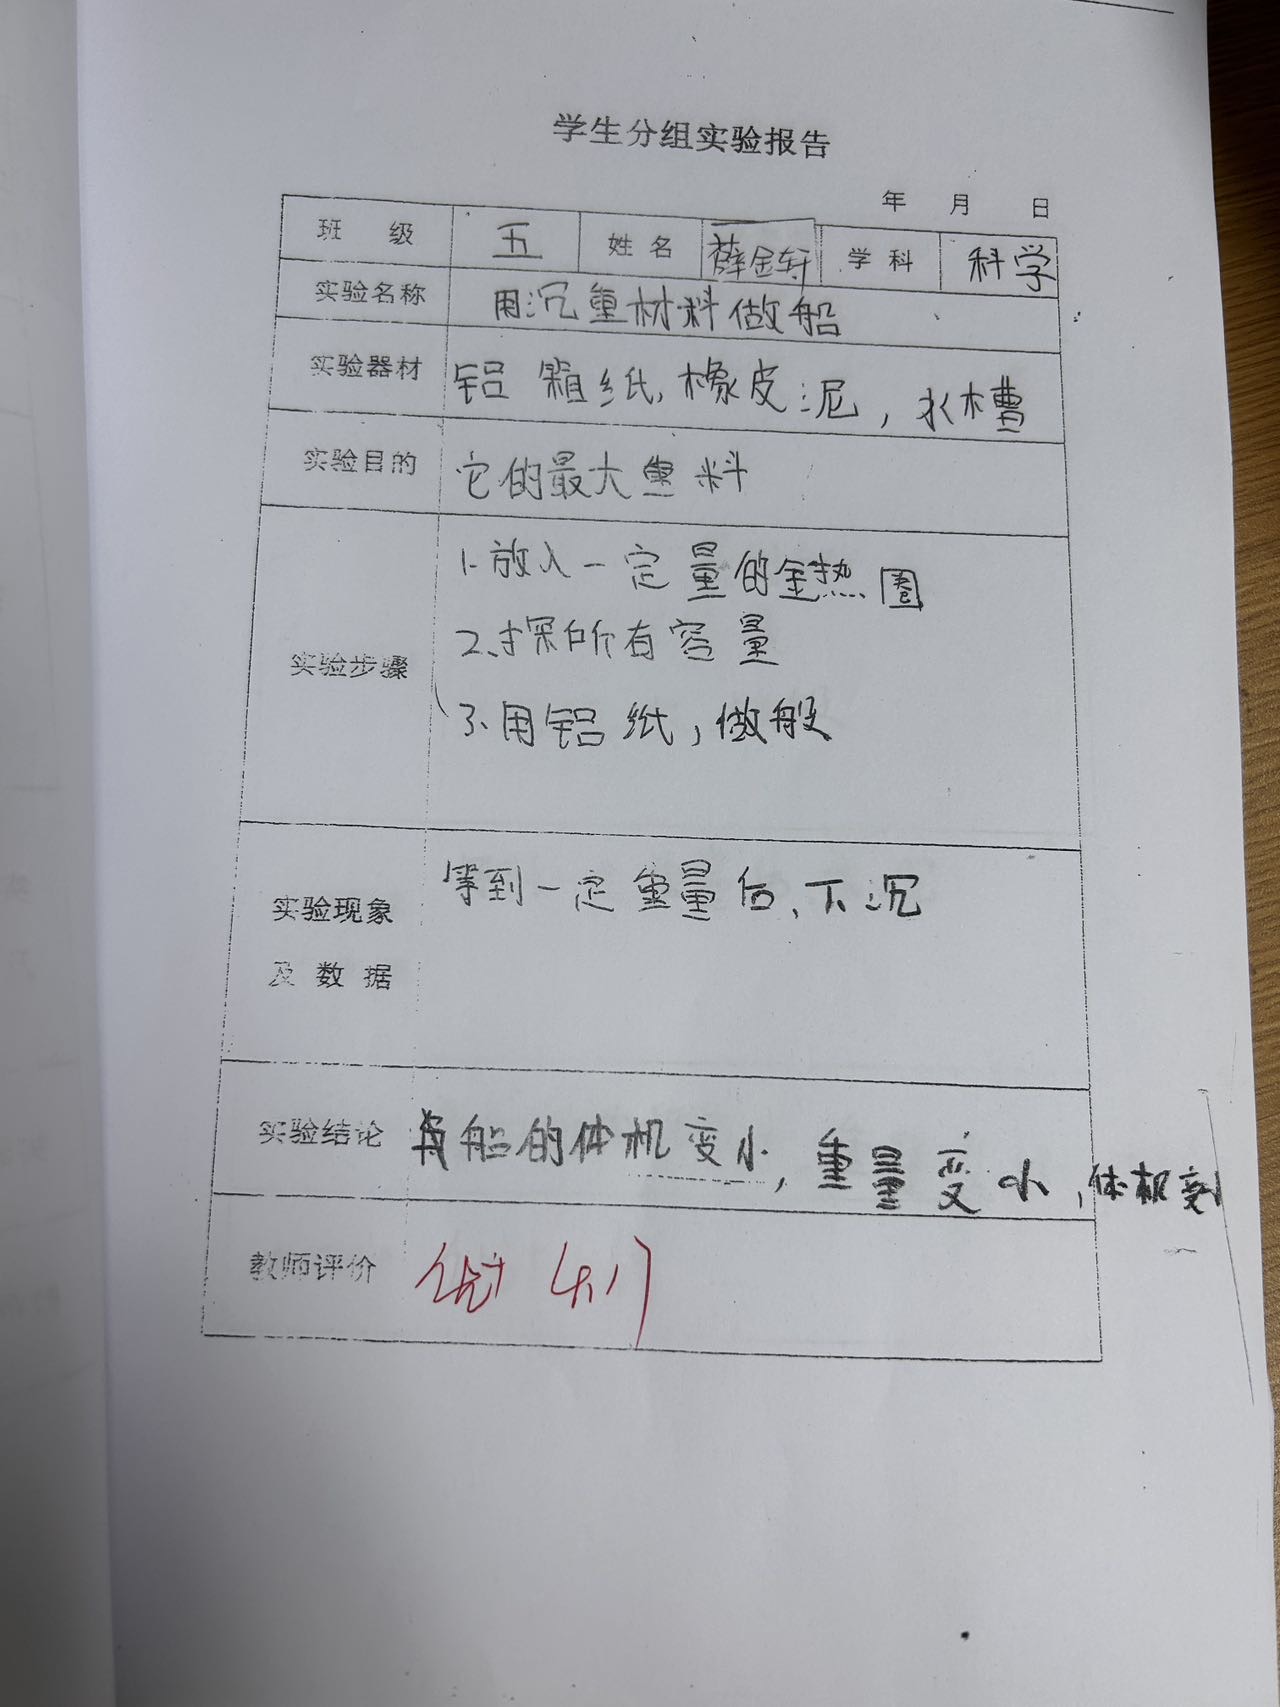 学生分组实验报告
年 月 日
班 级 五 姓 名 薛金轩 学 科 科学
实验名称 用沉重材料做船
实验器材 铝箔纸,橡皮泥,水槽
实验目的 它的最大重料
实验步骤
1.放入一定量的金热圈
2.探所有容量
3.用铝纸,做般
实验现象
及 数 据
等到一定重量后、下沉
实验结论 船的体机变小,重量变小,体积变
教师评价